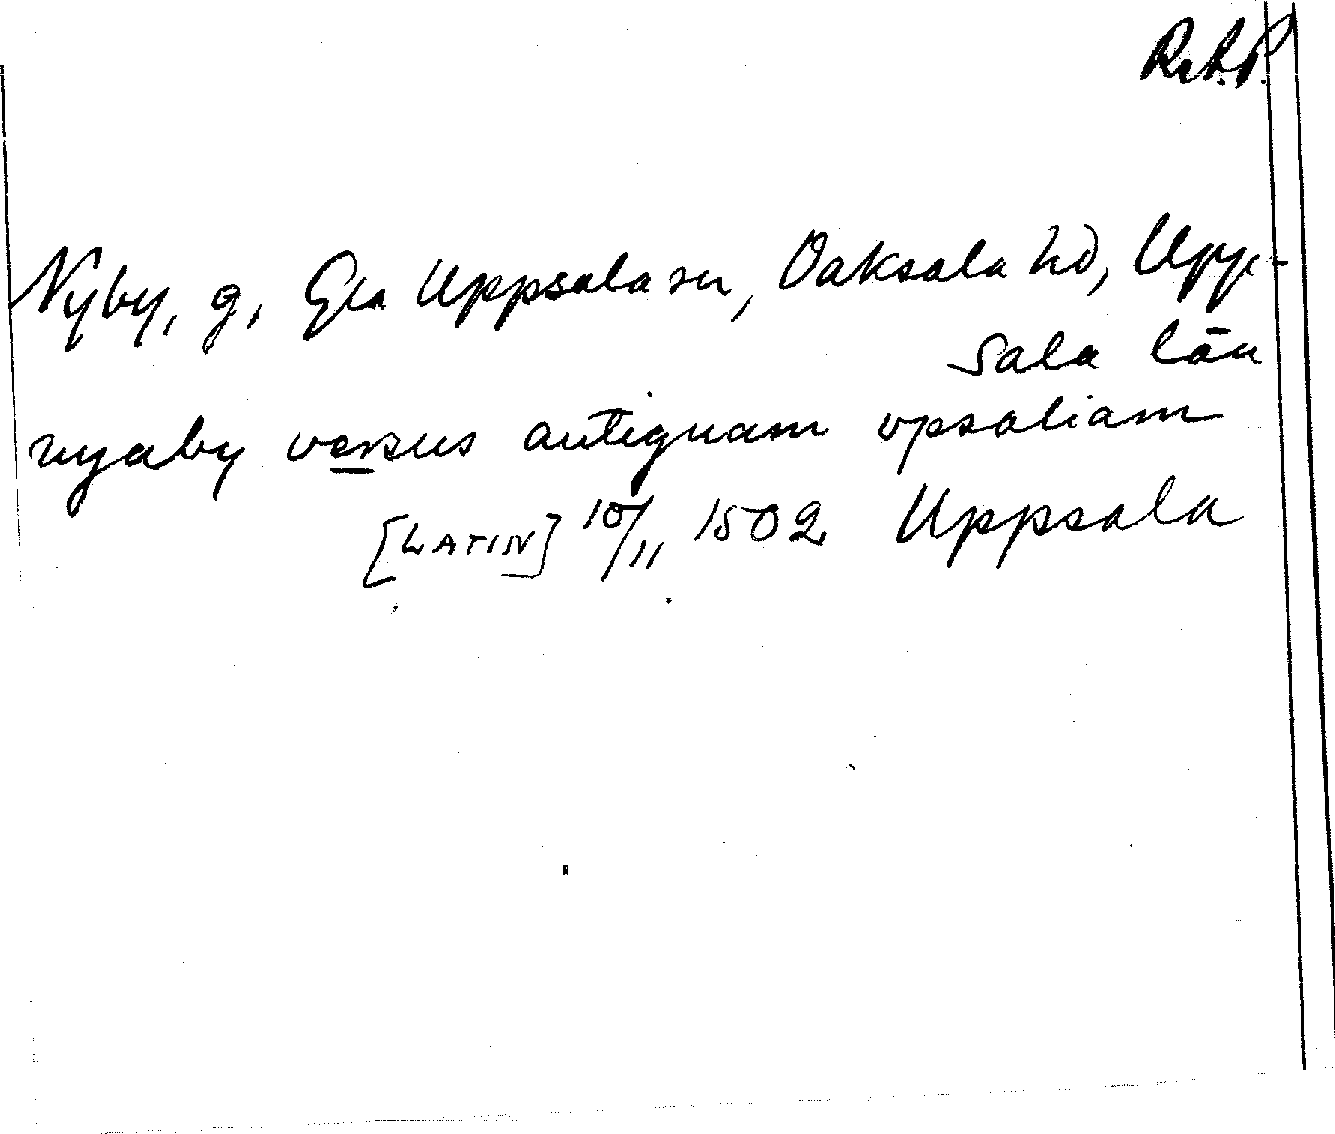 R.A.P.
Nyby, g, Gla Uppsala sn, Vaksala hd, Upp-
sala län
nyaby versus antiquam vpsaliam
[LATIN] 10/11 1502 Uppsala